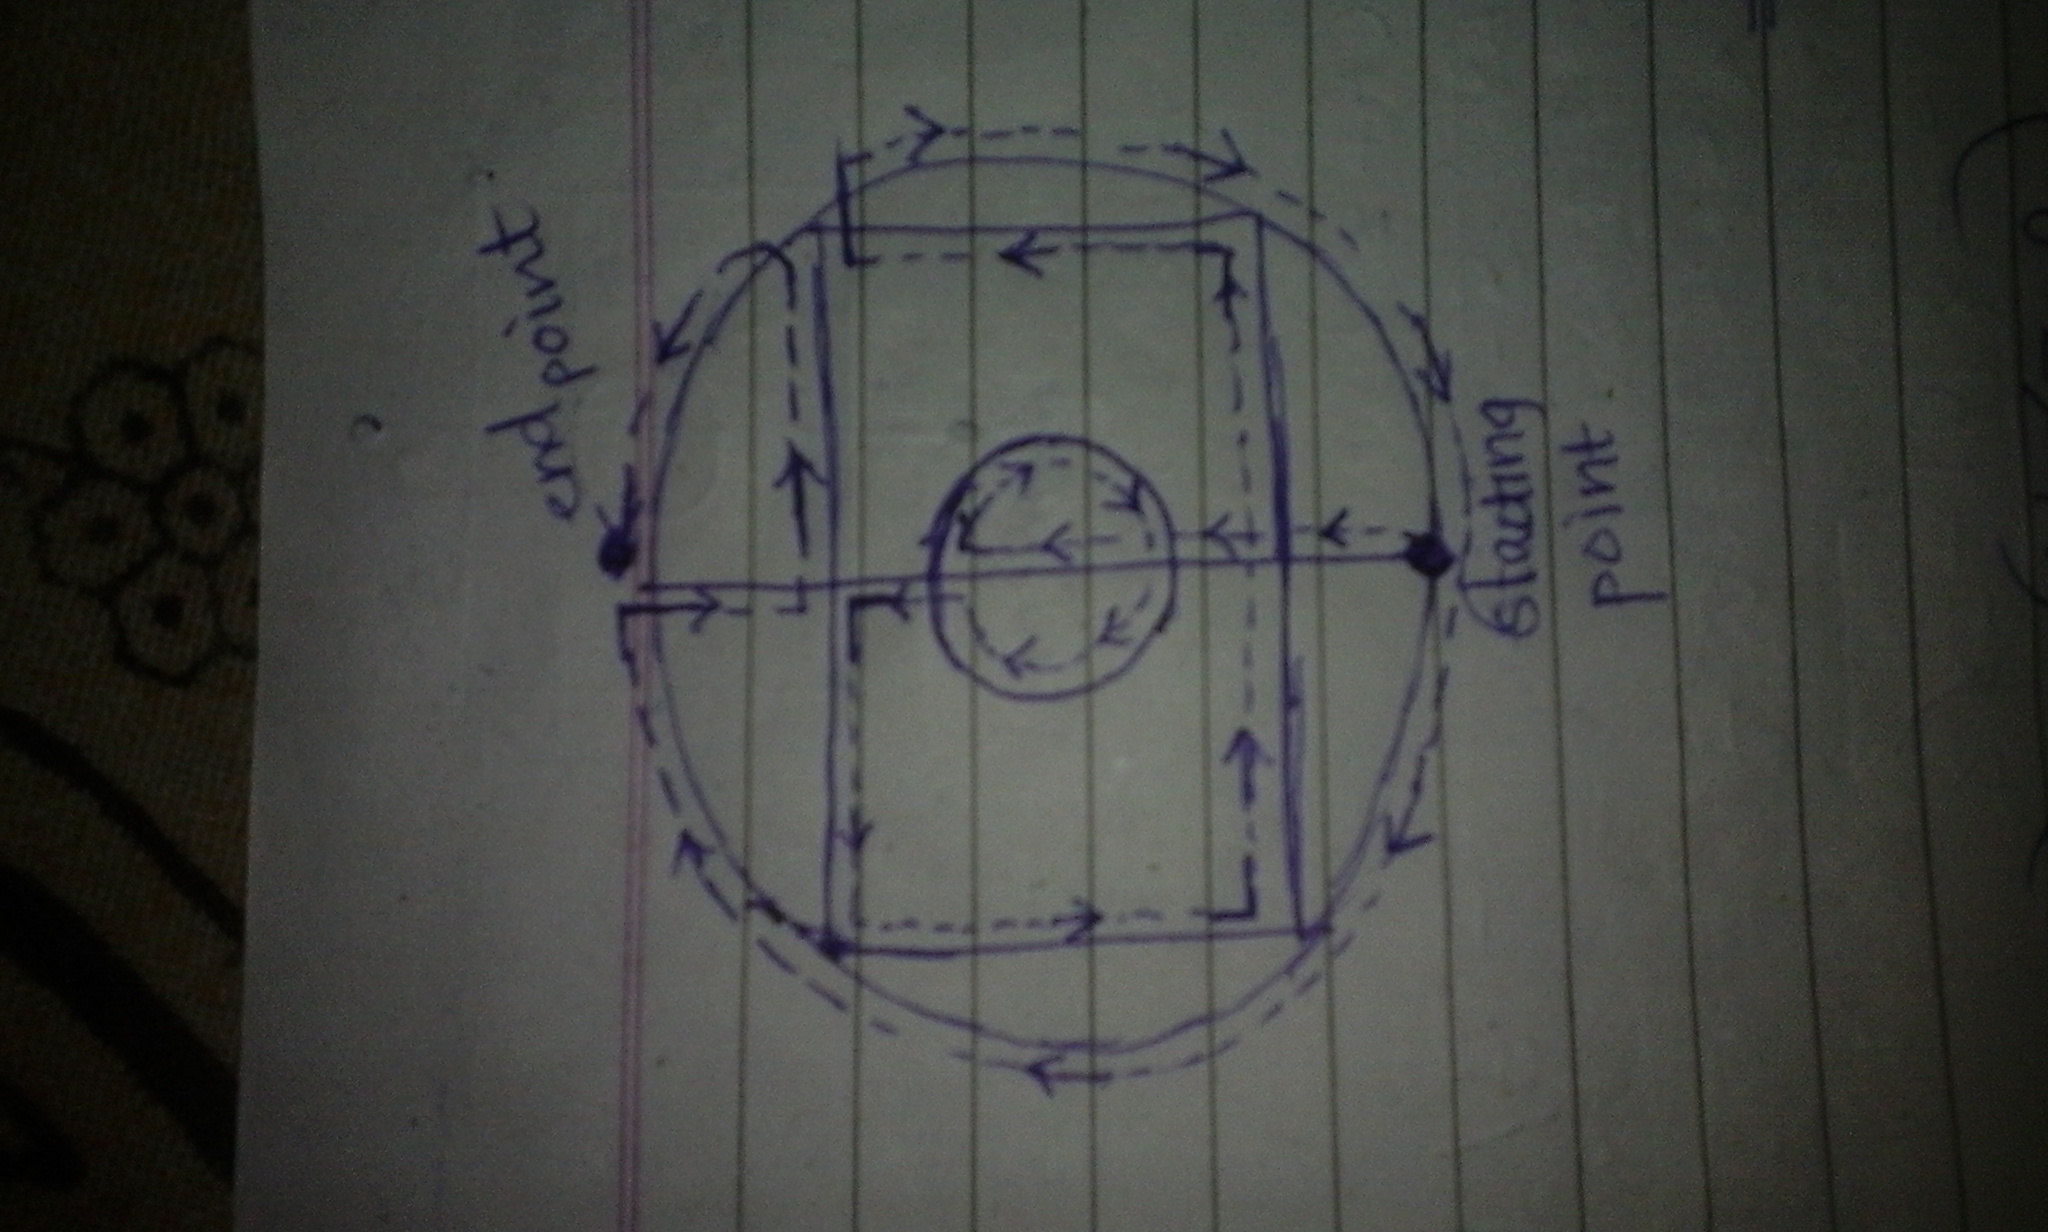 end point
starting
point